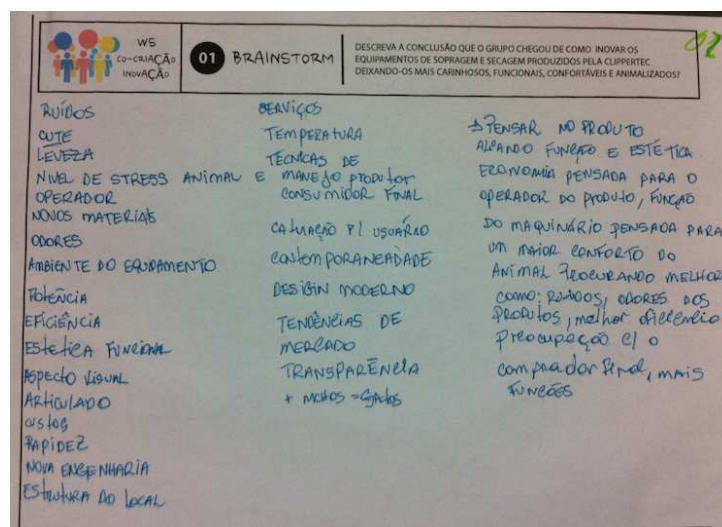 WS
CO-CRIAÇÃO
INOVAÇÃO
01 BRAINSTORM
DESCREVA A CONCLUSÃO QUE O GRUPO CHEGOU DE COMO INOVAR OS
EQUIPAMENTOS DE SOPRAGEM E SECAGEM PRODUZIDOS PELA CLIPPERTEC
DEIXANDO-OS MAIS CARINHOSOS, FUNCIONAIS, CONFORTÁVEIS E ANIMALIZADOS?
02
RUÍDOS
CUTE
LEVEZA
NIVEL DE STRESS ANIMAL E
OPERADOR
NOVOS MATERIAIS
ODORES
AMBIENTE DO EQUIPAMENTO
POTÊNCIA
EFICIÊNCIA
ESTETICA FUNCIONAL
ASPECTO VISUAL
ARTICULADO
CUSTOS
RAPIDEZ
NOVA ENGENHARIA
ESTRUTURA DO LOCAL
SERVIÇOS
TEMPERATURA
TÉCNICAS DE
MANEJO PRODUTOR
CONSUMIDOR FINAL
P/ USUÁRIO
CONTEMPORANEADADE
DESIGIN MODERNO
TENDÊNCIAS DE
MERCADO
TRANSPARÊNCIA
+ =
PENSAR NO PRODUTO
FUNÇÃO E ESTÉTICA
PENSADA PARA O
OPERADOR DO PRODUTO, FUNÇÃO
DO MAQUINÁRIO PENSADA PARA
UM MAIOR CONFORTO DO
ANIMAL PROCURANDO MELHOR
COMO: RUIDOS, ODORES DOS
PRODUTOS, melhor
preocupação c/ o
comprador final, mais
FUNÇÕES